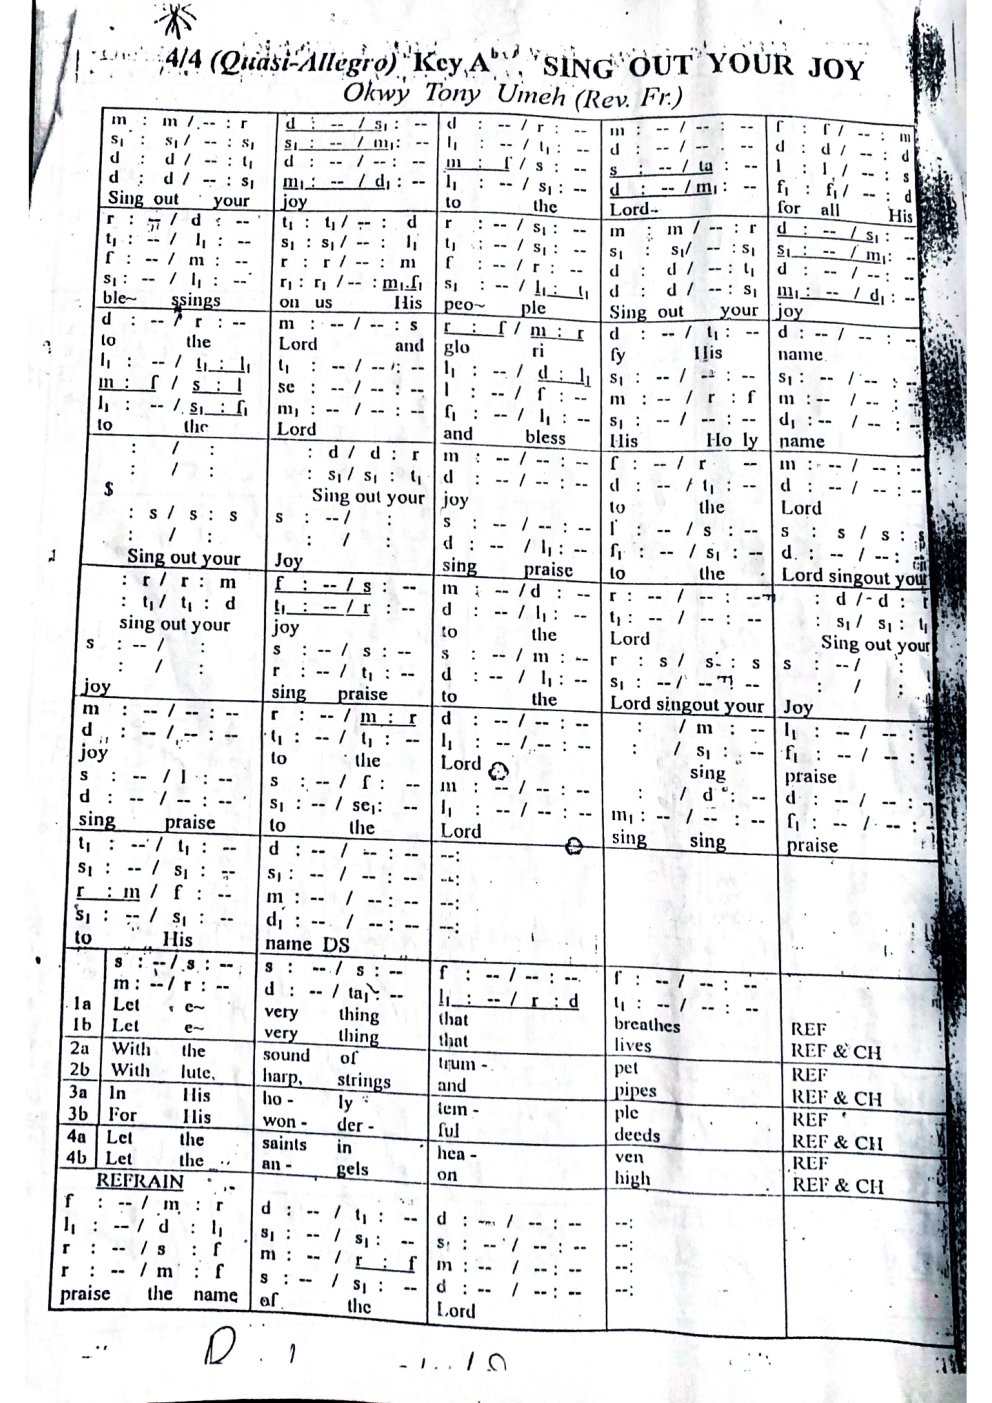 4/4 (Quasi-Allegro) Key Ab SING OUT YOUR JOY
Okwy Tony Umeh (Rev. Fr.)
m : m / -- : r | d : -- / s₁ : -- | d : -- / r : -- | m : -- / -- : -- | f : f / -- : m
s₁ : s₁ / -- : s₁ | s₁ : -- / m₁ : -- | l₁ : -- / t₁ : -- | d : -- / -- : -- | d : d / -- : d
d : d / -- : t₁ | d : -- / -- : -- | m : f / s : -- | s : -- / ta | l : l / -- : s
d : d / -- : s₁ | m₁ : -- / d₁ : -- | l₁ : -- / s₁ : -- | d : -- / m₁ : -- | f₁ : f₁ / -- : d
Sing out your | joy | to the | Lord- | for all His
r : -- / d : -- | t₁ : t₁ / -- : d | r : -- / s₁ : -- | m : m / -- : r | d : -- / s₁ : --
t₁ : -- / l₁ : -- | s₁ : s₁ / -- : l₁ | t₁ : -- / s₁ : -- | s₁ : s₁ / -- : s₁ | s₁ : -- / m₁ : --
f : -- / m : -- | r : r / -- : m | f : -- / r : -- | d : d / -- : t₁ | d : -- / -- : --
s₁ : -- / l₁ : -- | r₁ : r₁ / -- : m₁.f₁ | s₁ : -- / l₁ : t₁ | d : d / -- : s₁ | m₁ : -- / d₁ : --
ble~ ssings | on us His | peo~ ple | Sing out your | joy
d : -- / r : -- | m : -- / -- : s | r : f / m : r | d : -- / t₁ : -- | d : -- / -- : --
to the | Lord and | glo ri | fy His | name
l₁ : -- / t₁ : l₁ | t₁ : -- / -- : -- | l₁ : -- / d : l₁ | s₁ : -- / -- : -- | s₁ : -- / -- : --
m : f / s : l | se : -- / -- : -- | l : -- / f : -- | m : -- / r : f | m : -- / -- : --
l₁ : -- / s₁ : f₁ | m₁ : -- / -- : -- | f₁ : -- / l₁ : -- | s₁ : -- / -- : -- | d₁ : -- / -- : --
to the | Lord | and bless | His Ho ly | name
: / : | : d / d : r | m : -- / -- : -- | f : -- / r -- | m : -- / -- : --
: / : | : s₁ / s₁ : t₁ | d : -- / -- : -- | d : -- / t₁ : -- | d : -- / -- : --
$ | Sing out your | joy | to the | Lord
: s / s : s | s : -- / : | s : -- / -- : -- | f : -- / s : -- | s : s / s : s
: / : | : / : | d : -- / l₁ : -- | f₁ : -- / s₁ : -- | d : -- / -- : --
Sing out your | Joy | sing praise | to the | Lord singout your
: r / r : m | f : -- / s : -- | m : -- / d : -- | r : -- / -- : -- | : d / d : r
: t₁ / t₁ : d | t₁ : -- / r : -- | d : -- / l₁ : -- | t₁ : -- / -- : -- | : s₁ / s₁ : t₁
sing out your | joy | to the | Lord | Sing out your
s : -- / : | s : -- / s : -- | s : -- / m : -- | r : s / s : s | s : -- / :
: / : | r : -- / t₁ : -- | d : -- / l₁ : -- | s₁ : -- / -- : -- | : / :
joy | sing praise | to the | Lord singout your | Joy
m : -- / -- : -- | r : -- / m : r | d : -- / -- : -- | : / m : -- | l₁ : -- / -- : --
d : -- / -- : -- | t₁ : -- / t₁ : -- | l₁ : -- / -- : -- | : / s₁ : -- | f₁ : -- / -- : --
joy | to the | Lord | sing | praise
s : -- / l : -- | s : -- / f : -- | m : -- / -- : -- | : / d : -- | d : -- / -- : --
d : -- / -- : -- | s₁ : -- / se₁ : -- | l₁ : -- / -- : -- | m₁ : -- / -- : -- | f₁ : -- / -- : --
sing praise | to the | Lord | sing sing | praise
t₁ : -- / t₁ : -- | d : -- / -- : -- | --:
s₁ : -- / s₁ : -- | s₁ : -- / -- : -- | --:
r : m / f : -- | m : -- / -- : -- | --:
s₁ : -- / s₁ : -- | d₁ : -- / -- : -- | --:
to His | name DS
s : -- / s : -- | s : -- / s : -- | f : -- / -- : -- | f : -- / -- : --
m : -- / r : -- | d : -- / ta₁ : -- | l₁ : -- / r : d | t₁ : -- / -- : --
1a Let e~ | very thing | that | breathes | REF
1b Let e~ | very thing | that | lives | REF & CH
2a With the | sound of | trum - | pet | REF
2b With lute, | harp, strings | and | pipes | REF & CH
3a In His | ho - ly | tem - | ple | REF
3b For His | won - der - | ful | deeds | REF & CH
4a Let the | saints in | hea - | ven | REF
4b Let the | an - gels | on | high | REF & CH
REFRAIN
f : -- / m : r | d : -- / t₁ : -- | d : -- / -- : -- | --:
l₁ : -- / d : l₁ | s₁ : -- / s₁ : -- | s₁ : -- / -- : -- | --:
r : -- / s : f | m : -- / r : f | m : -- / -- : -- | --:
r : -- / m : f | s : -- / s₁ : -- | d : -- / -- : -- | --:
praise the name | of the | Lord